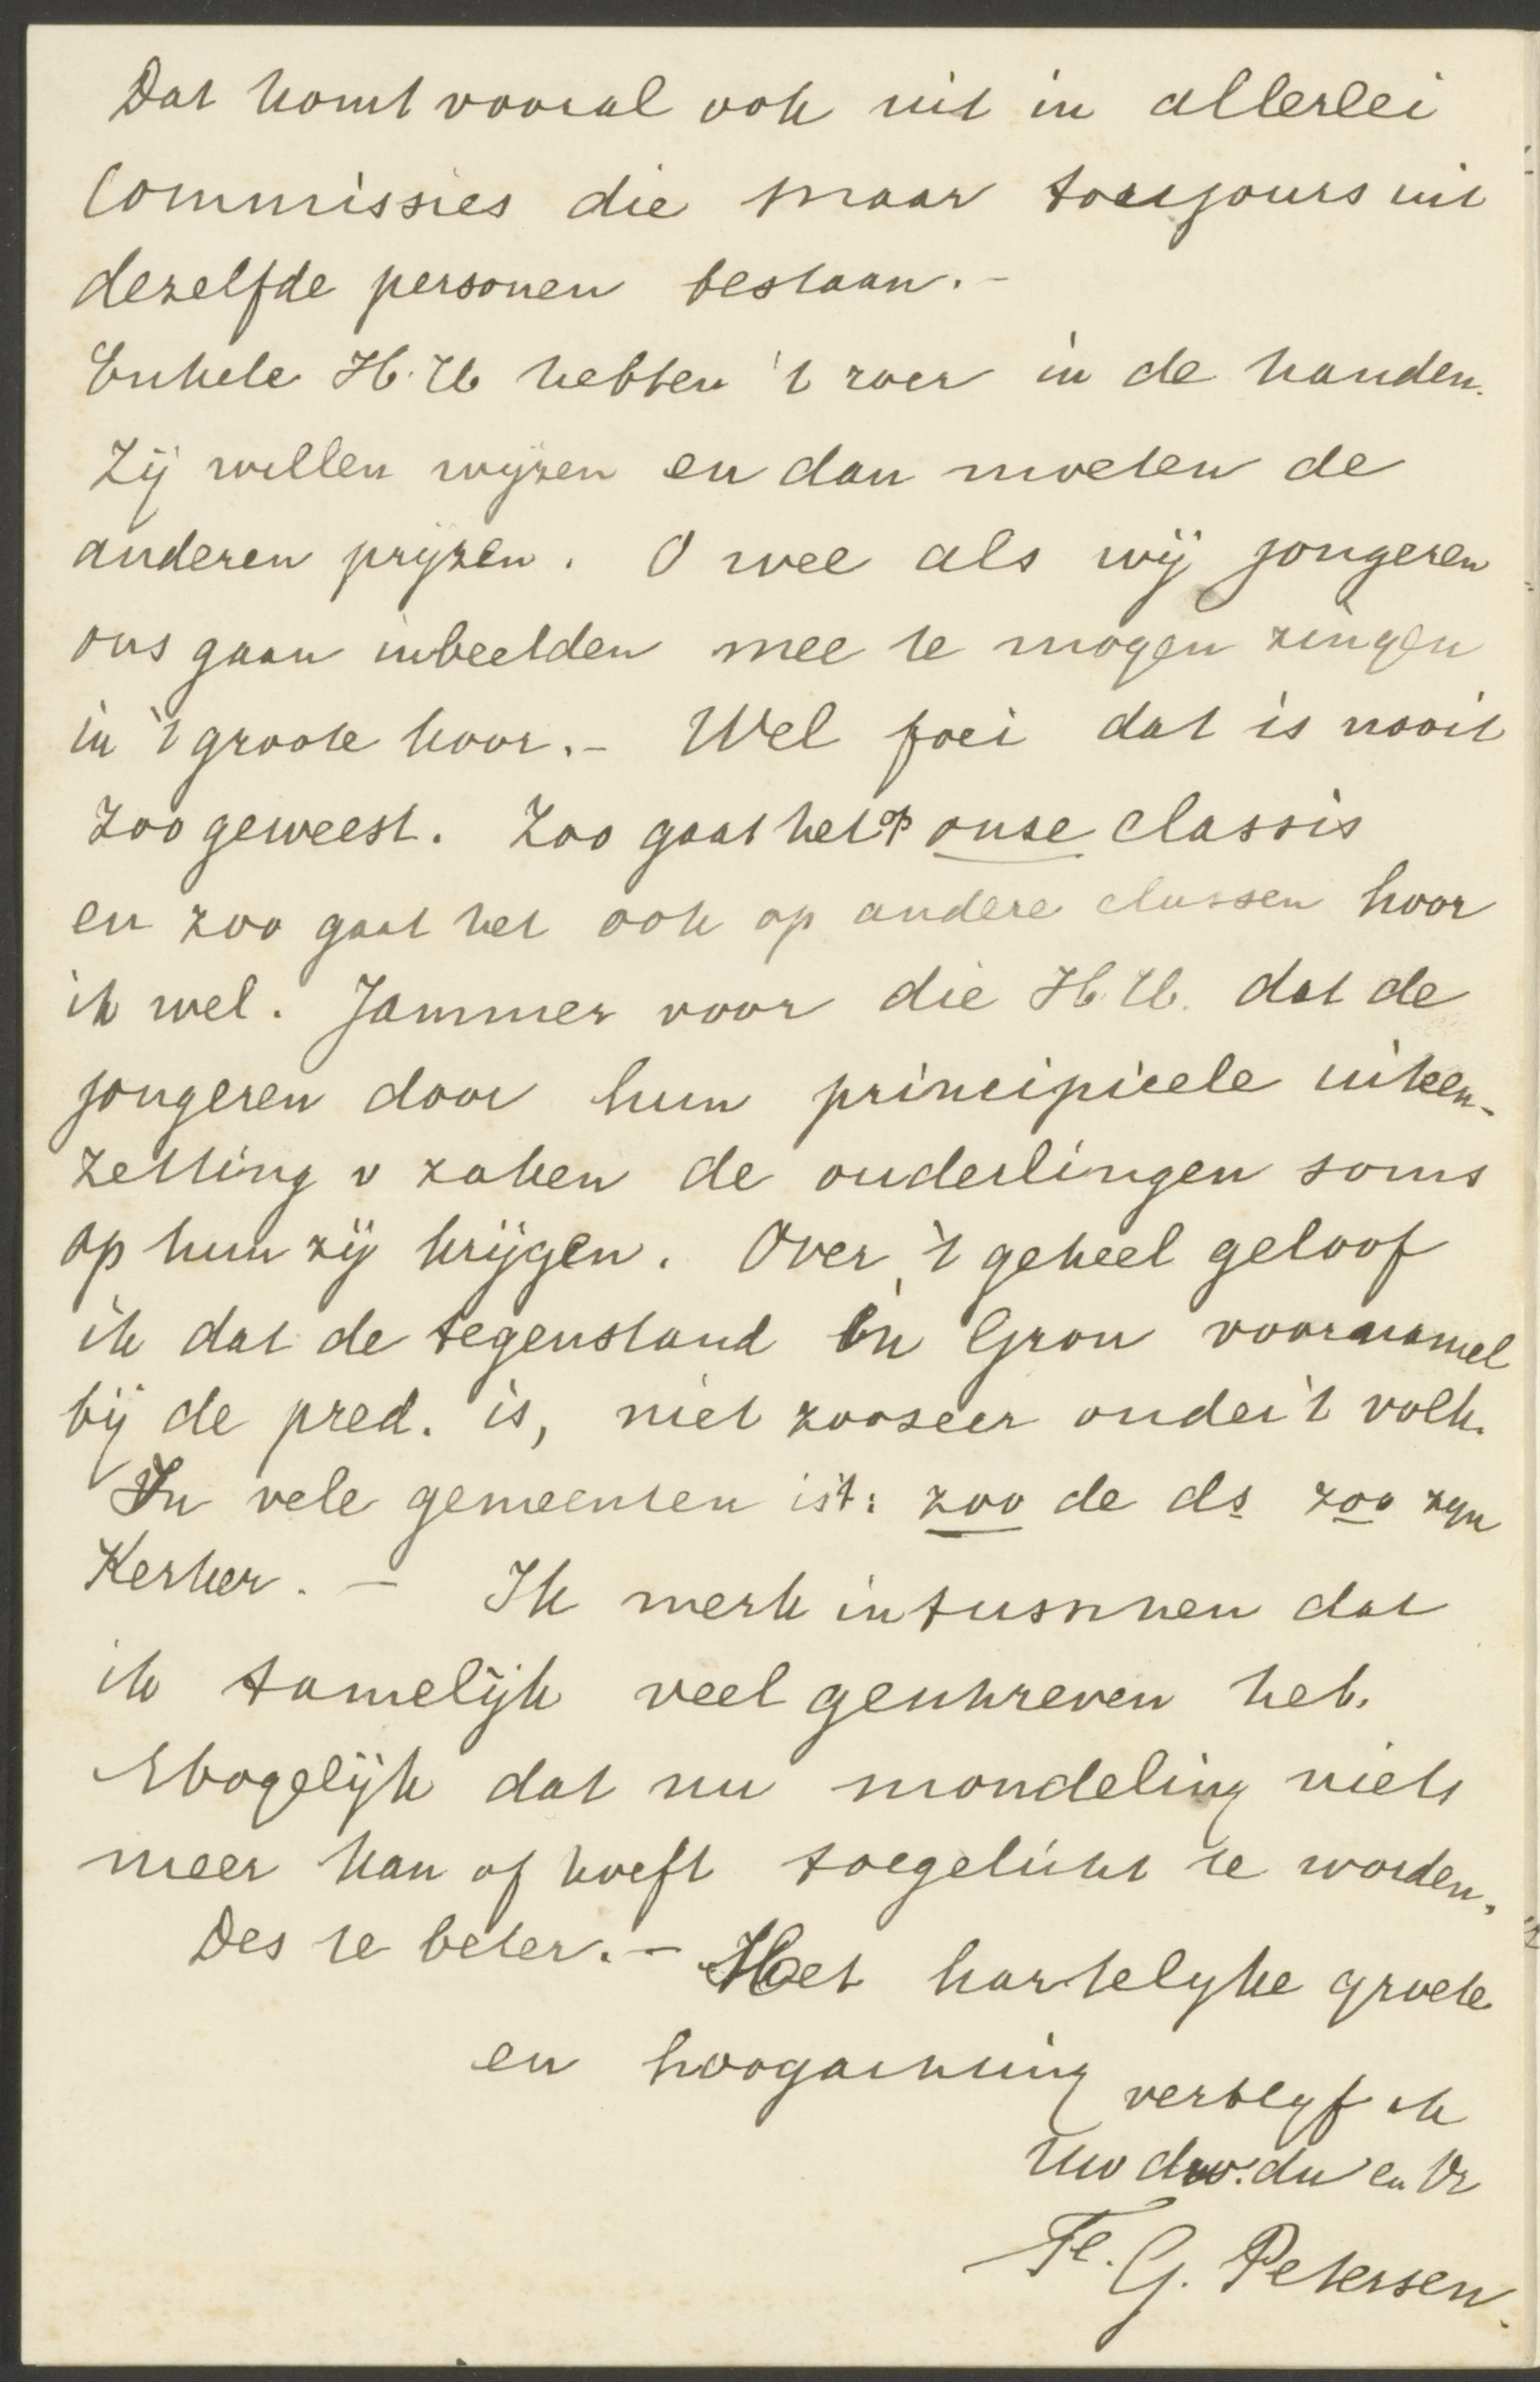 Dat komt vooral ook uit in allerlei
Commissies die maar toujours uit
dezelfde personen bestaan.-
Enkele H.H. hebben 't roer in de handen.
Zij willen wijzen en dan moeten de
anderen prijzen. O wee als wij jongeren
ons gaan inbeelden mee te mogen zingen
in 't groote koor.- Wel foei dat is nooit
Zoo geweest. Zoo gaat het op onze classis
en zoo gaat het ook op andere classen hoor
ik wel. Jammer voor die H.H. dat de
jongeren door hun principieele uiteen-
zetting v zaken de ouderlingen soms
op hun zij krijgen. Over 't geheel geloof
ik dat de tegenstand in Gron voornamel
bij de pred. is, niet zoozeer onder 't volk.
In vele gemeenten is 't: zoo de ds zoo zyn
Kerker. - Ik merk intusschen dat
ik tamelijk veel geschreven heb.
Mogelijk dat nu mondeling niets
meer kan of hoeft toegelicht te worden.
Des te beter.- Met hartelyke groete
en hoogachting verblyf ik
Uw dw. du en Br
Fe. G. Petersen.